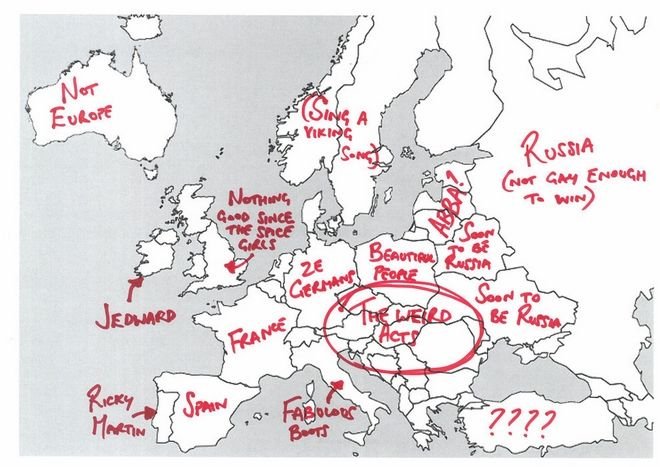 NOT
EUROPE
(SING A
VIKING
SONG)
RUSSIA
(NOT GAY ENOUGH
TO WIN)
ABBA?
NOTHING
GOOD SINCE
THE SPICE
GIRLS
SOON
TO BE
RUSSIA
BEAUTIFUL
PEOPLE
ZE
GERMANS
SOON TO
BE RUSSIA
JEDWARD
FRANCE
THE WEIRD
ACTS
RICKY
MARTIN
SPAIN
FABULOUS
BOOTS
????